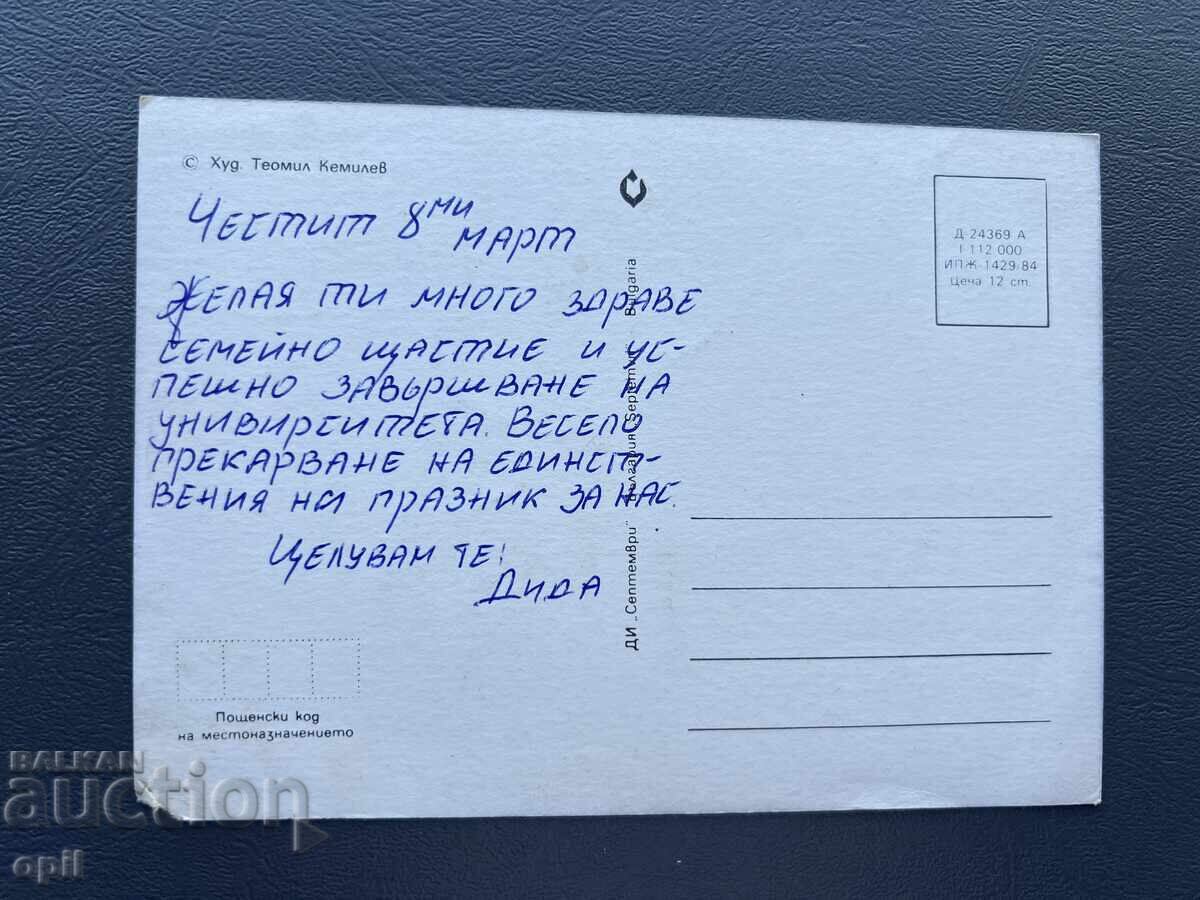 © Худ. Теомил Кемилев
Честит 8ми
март
Желая ти много здраве
семейно щастие и ус-
пешно завършване на
унивирситета. Весело
прекарване на единст-
вения ни празник за нас.
Целувам те!
Дида
Пощенски код
на местоназначението
ДИ „Септември“ България Septemvri Bulgaria
Д 24369 А
I 112 000
ИПЖ 1429/84
Цена 12 ст.
BALKAN
auction
opil